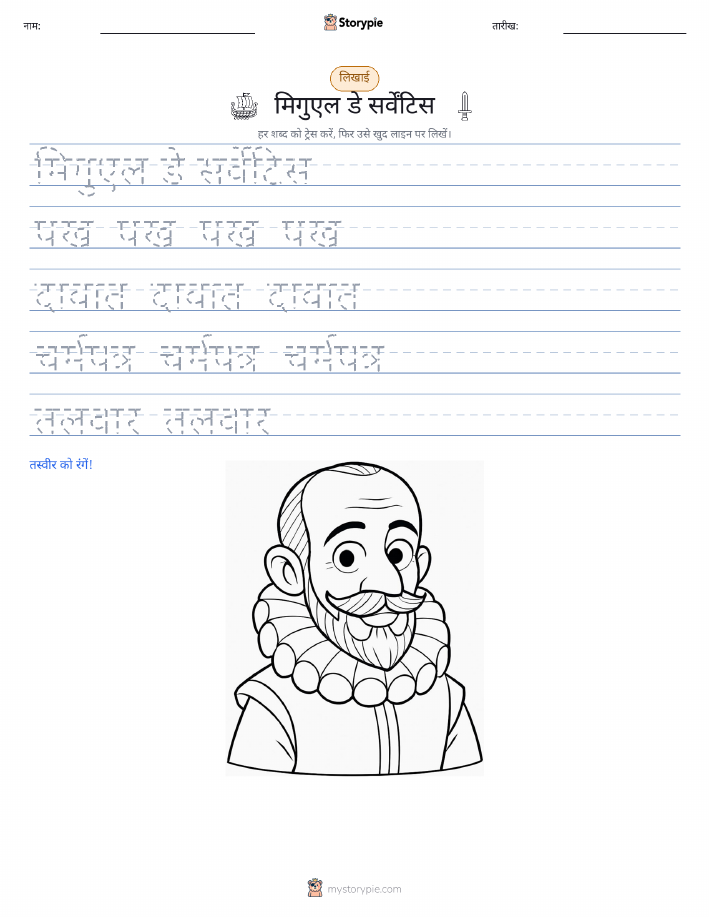 नाम:
Storypie
तारीख:
लिखाई
मिगुएल डे सर्वेंटिस
हर शब्द को ट्रेस करें, फिर उसे खुद लाइन पर लिखें।
मिगुएल डे सर्वेंटिस
पंख पंख पंख पंख
दावात दावात दावात
चर्मपत्र चर्मपत्र चर्मपत्र
तलवार तलवार
तस्वीर को रंगें!
mystorypie.com